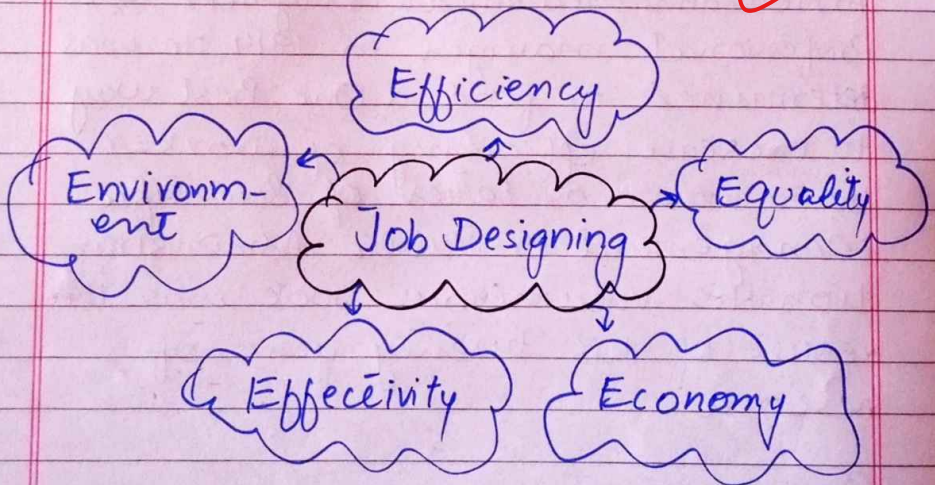 Efficiency
Environm-
ent
Job Designing
Equality
Effectivity
Economy